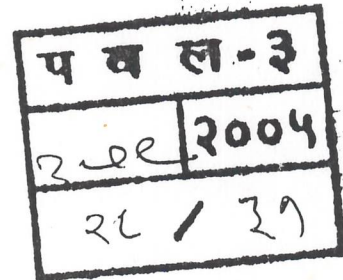 प व ल-३
२००५
२८ / ३१